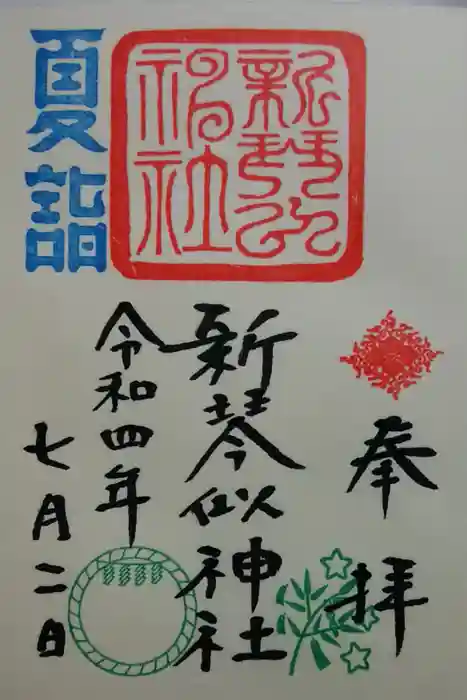 新琴似
神社
夏詣
奉拝
新琴似神社
令和四年
七月二日